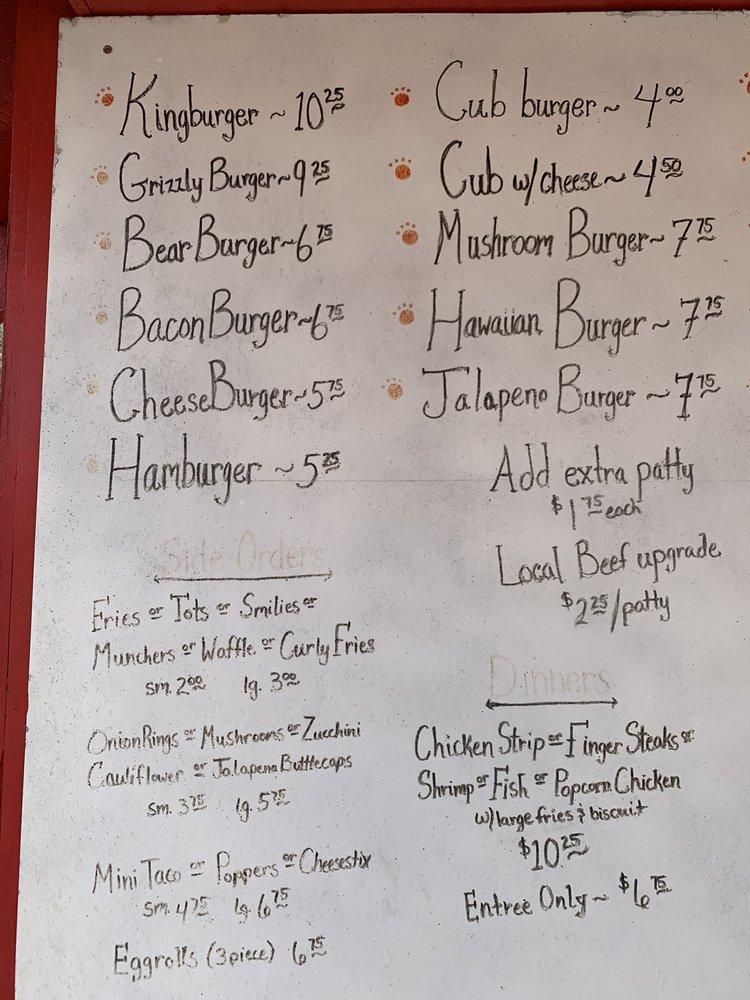 Kingburger ~ 10 25
Grizzly Burger ~ 9 25
Bear Burger ~ 6 75
Bacon Burger ~ 6 75
Cheese Burger ~ 5 75
Hamburger ~ 5 25
Side Orders
Fries or Tots or Smilies or
Munchers or Waffle or Curly Fries
sm. 2 00 lg. 3 00
Onion Rings or Mushrooms or Zucchini
Cauliflower or Jalapeno Bottlecaps
sm. 3 75 lg. 5 75
Mini Taco or Poppers or Cheesestix
sm. 4 75 lg. 6 75
Eggrolls (3 piece) 6 75
Cub burger ~ 4 00
Cub w/ cheese ~ 4 50
Mushroom Burger ~ 7 75
Hawaiian Burger ~ 7 75
Jalapeno Burger ~ 7 75
Add extra patty
$1 75 each
Local Beef upgrade
$2 25/patty
Dinners
Chicken Strip or Finger Steaks or
Shrimp or Fish or Popcorn Chicken
w/ large fries & biscuit
$10 25
Entree Only ~ $6 75